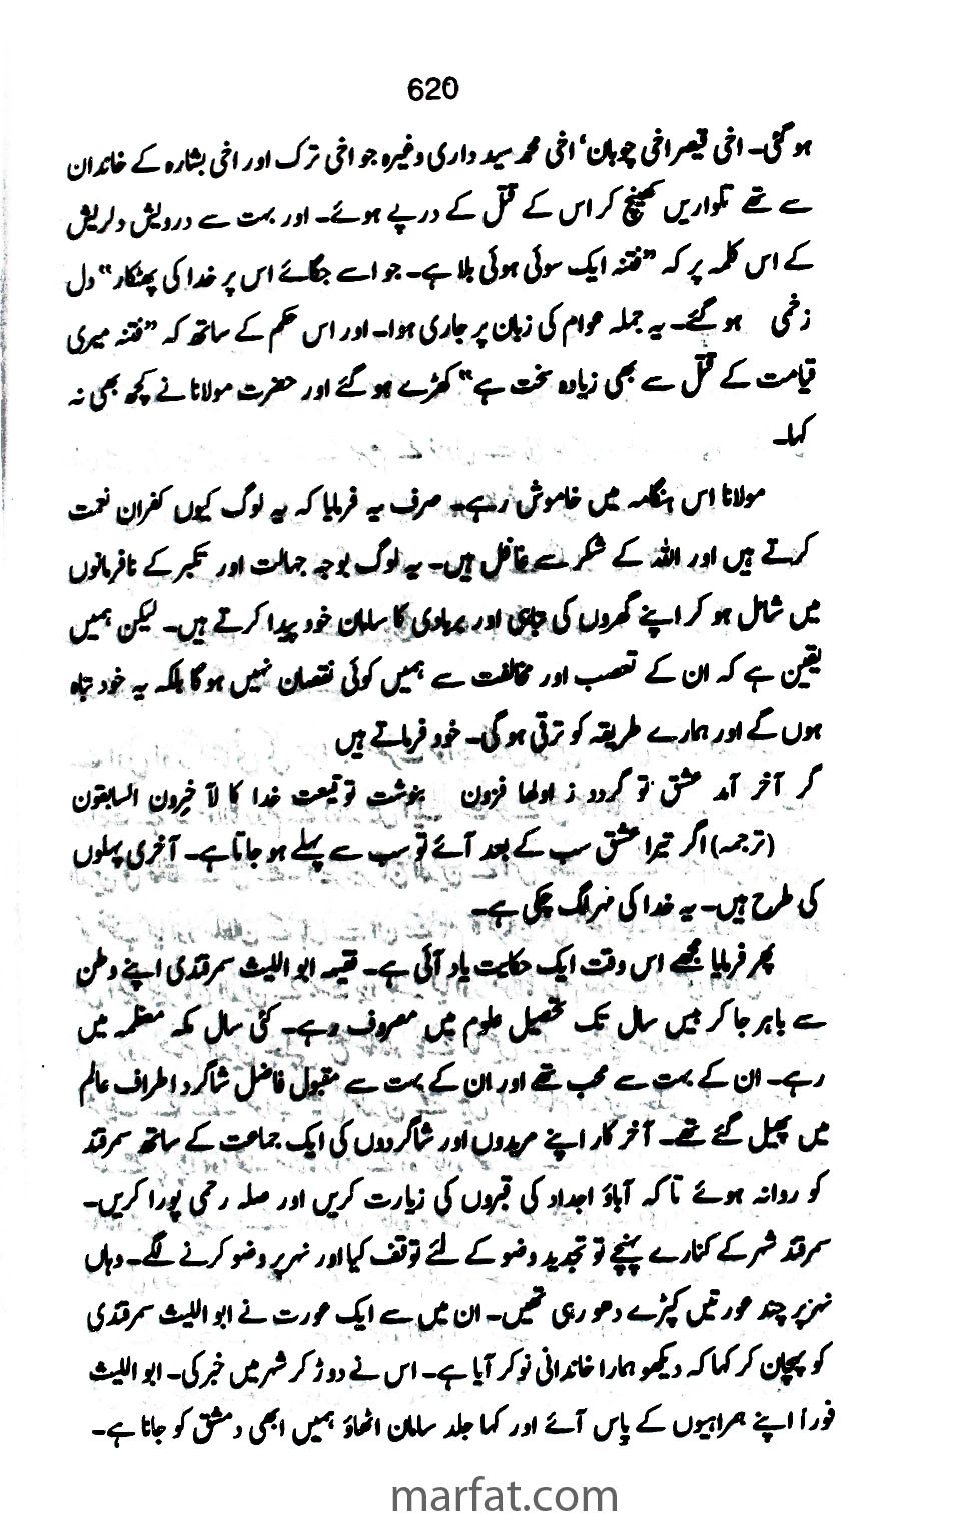 620
ہو گئی۔ اخی قیصر اخی چوبان‘ اخی محمد سید داری وغیرہ جو اخی ترک اور اخی بشارہ کے خاندان
سے تھے تلواریں کھینچ کر اس کے قتل کے درپے ہوئے۔ اور بہت سے درویش دلریش
کے اس کلمہ پر کہ ”فتنہ ایک سوئی ہوئی بلا ہے۔ جو اسے جگائے اس پر خدا کی پھٹکار“ دل
زخمی ہو گئے۔ یہ جملہ عوام کی زبان پر جاری ہوا۔ اور اس حکم کے ساتھ کہ ”فتنہ میری
قیامت کے قتل سے بھی زیادہ سخت ہے“ کھڑے ہو گئے اور حضرت مولانا نے کچھ بھی نہ
کہا۔
مولانا اس ہنگامہ میں خاموش رہے۔ صرف یہ فرمایا کہ یہ لوگ کیوں کفران نعمت
کرتے ہیں اور اللہ کے شکر سے غافل ہیں۔ یہ لوگ بوجہ جہالت اور تکبر کے نافرمانوں
میں شامل ہو کر اپنے گھروں کی تباہی اور بربادی کا سامان خود پیدا کرتے ہیں۔ لیکن ہمیں
یقین ہے کہ ان کے تعصب اور مخالفت سے ہمیں کوئی نقصان نہیں ہو گا بلکہ یہ خود تباہ
ہوں گے اور ہمارے طریقہ کو ترقی ہو گی۔ خود فرماتے ہیں
گر آخر آمد عشق تو گردد ز اولہا فزون بنوشت توقیعت خدا کا لآ خِرون السابقون
(ترجمہ) اگر تیرا عشق سب کے بعد آئے تو سب سے پہلے ہو جاتا ہے۔ آخری پہلوں
کی طرح ہیں۔ یہ خدا کی مہر لگ چکی ہے۔
پھر فرمایا مجھے اس وقت ایک حکایت یاد آئی ہے۔ فقیہہ ابو اللیث سمرقندی اپنے وطن
سے باہر جا کر بیس سال تک تحصیل علوم میں مصروف رہے۔ کئی سال مکہ معظمہ میں
رہے۔ ان کے بہت سے محب تھے اور ان کے بہت سے مقبول فاضل شاگرد اطراف عالم
میں پھیل گئے تھے۔ آخر کار اپنے مریدوں اور شاگردوں کی ایک جماعت کے ساتھ سمرقند
کو روانہ ہوئے تاکہ آباؤ اجداد کی قبروں کی زیارت کریں اور صلہ رحمی پورا کریں۔
سمرقند شہر کے کنارے پہنچے تو تجدید وضو کے لئے توقف کیا اور نہر پر وضو کرنے لگے۔ وہاں
نہر پر چند عورتیں کپڑے دھو رہی تھیں۔ ان میں سے ایک عورت نے ابو اللیث سمرقندی
کو پہچان کر کہا کہ دیکھو ہمارا خاندانی نوکر آیا ہے۔ اس نے دوڑ کر شہر میں خبر کی۔ ابو اللیث
فوراً اپنے ہمراہیوں کے پاس آئے اور کہا جلد سامان اٹھاؤ ہمیں ابھی دمشق کو جانا ہے۔
marfat.com